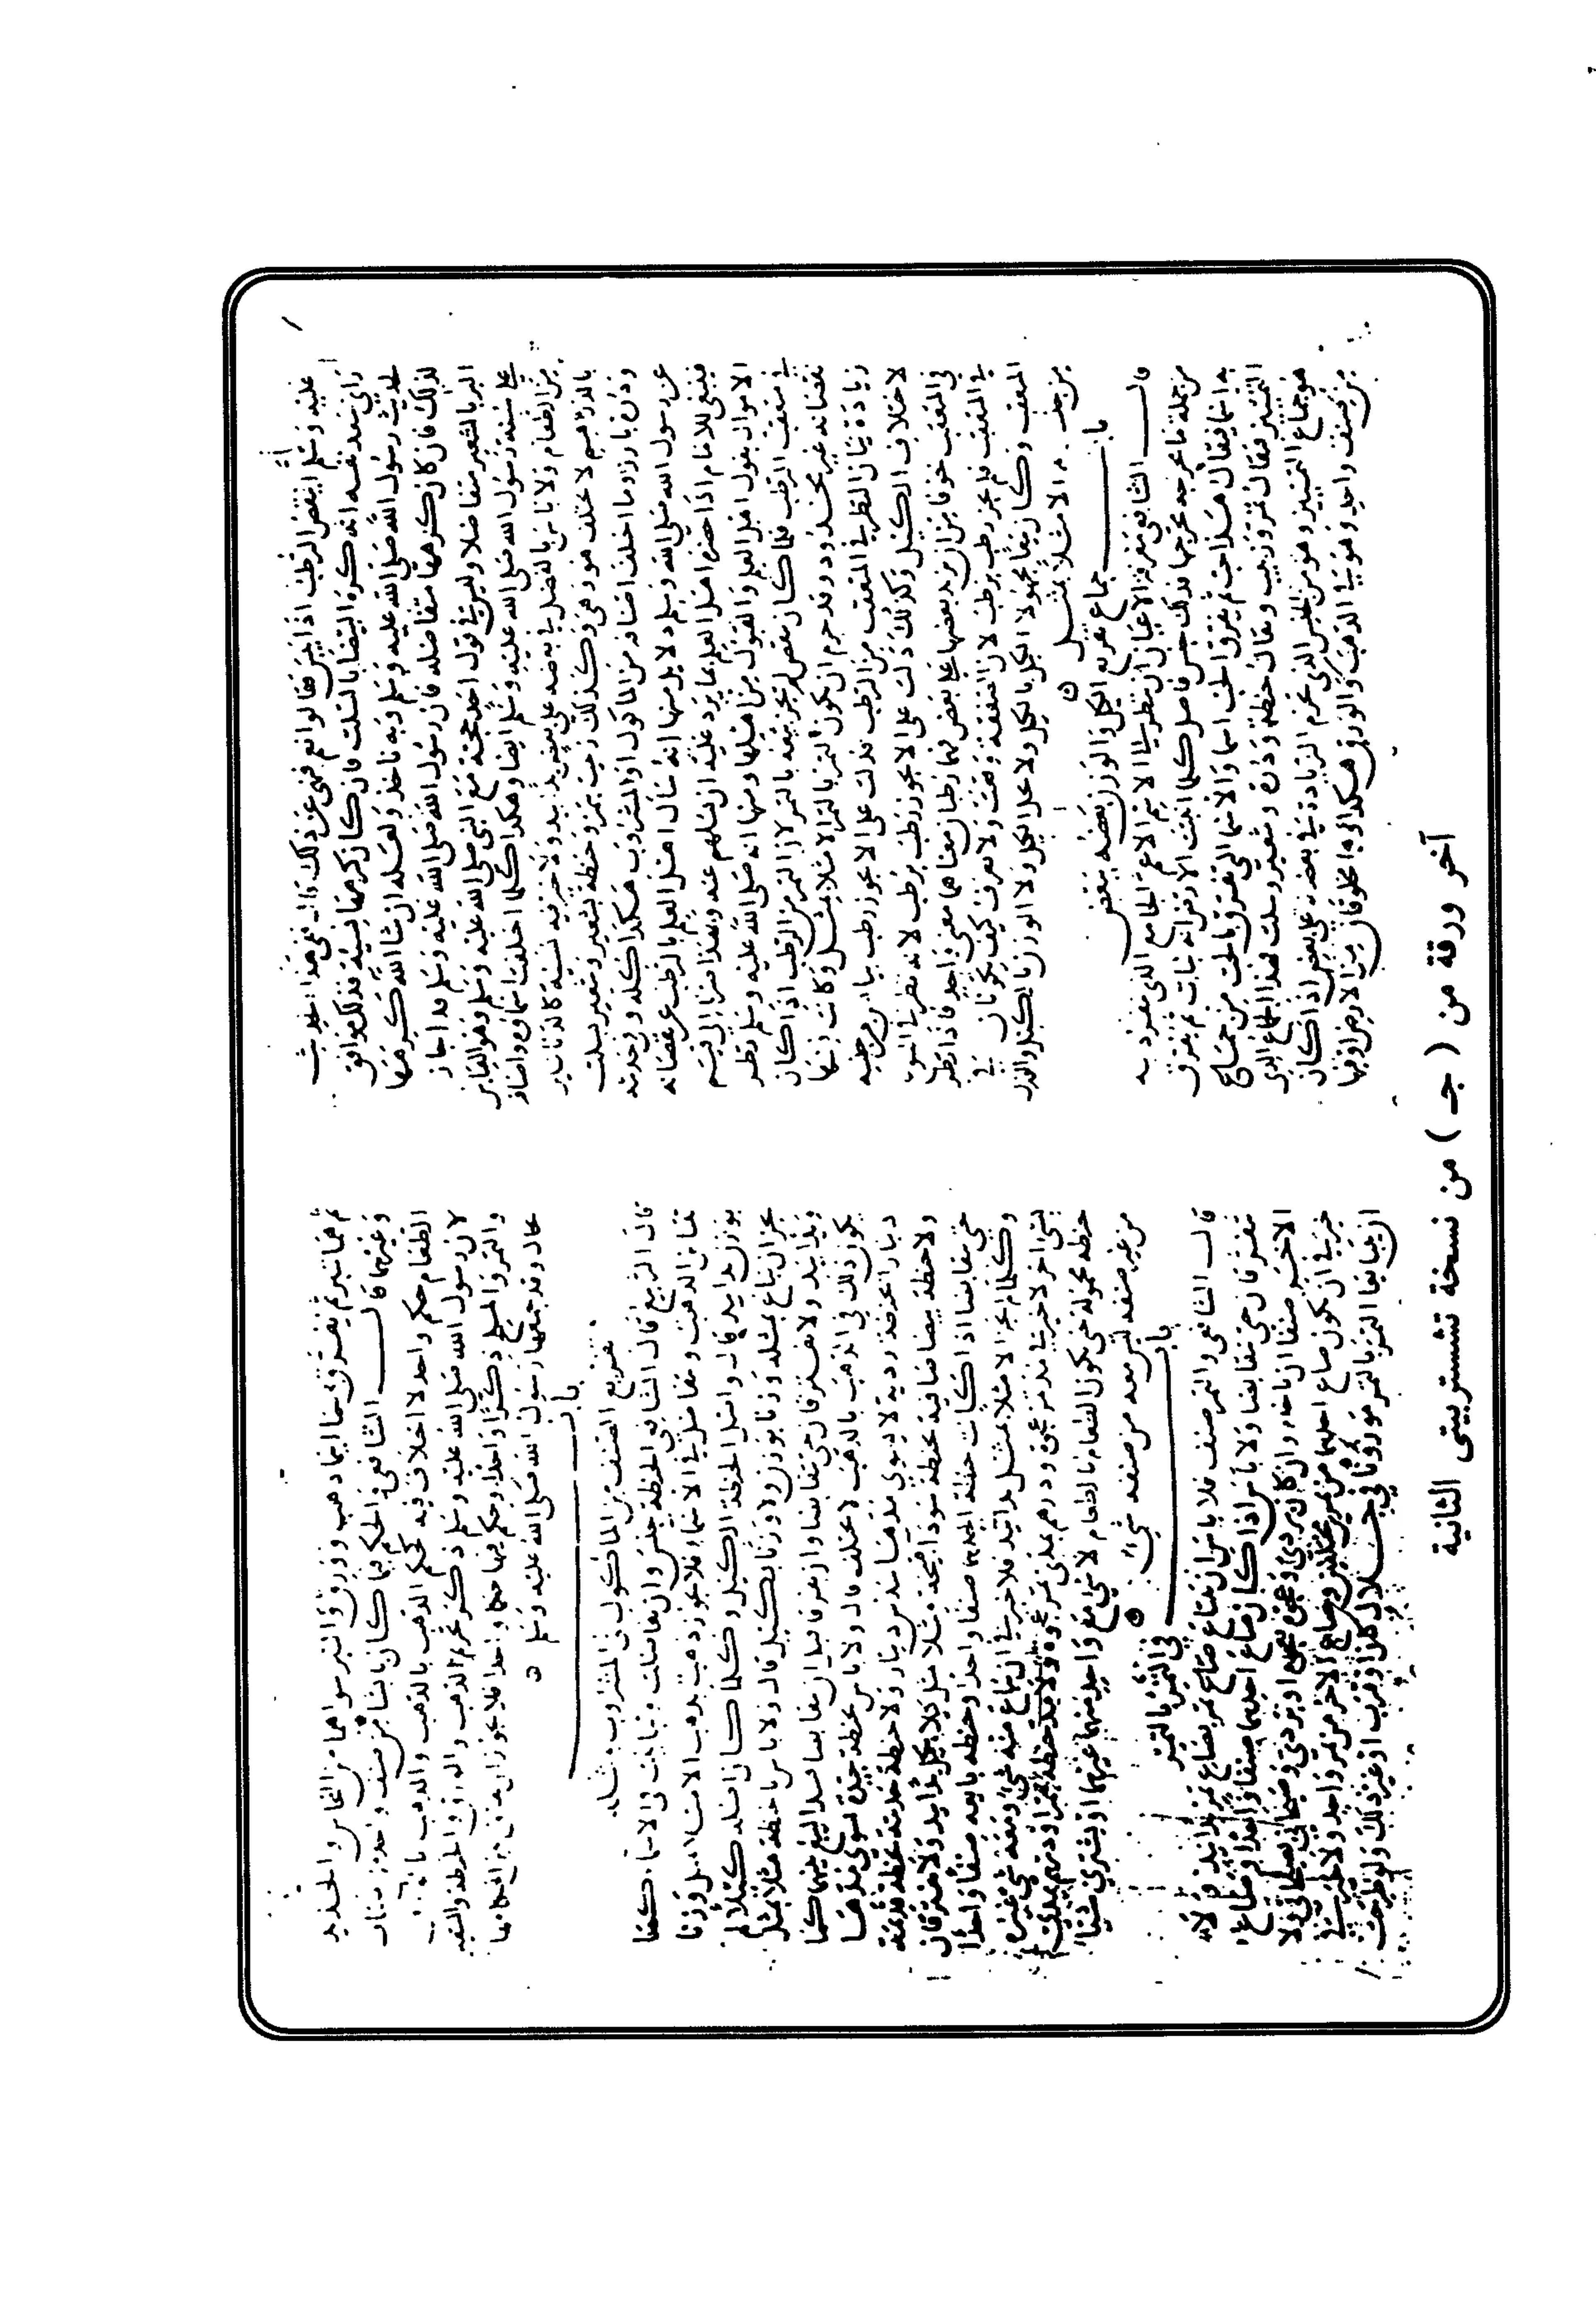 عليه وسلم أينقص الرطب اذا يبس فقالوا نعم فنهى عن ذلك قال ففى هذا الحديث
رأي سعد نفسه انه كره البيضا بالسلت فان كان كرهها نسيئة فذلك موافق
لحديث رسول الله صلى الله عليه وسلم وبه ناخذ ولعله ان شا الله كرهها
لذلك فان كان كرهها متفاضلة فان رسول الله صلى الله عليه وسلم قد اجاز
البر بالشعير متفاضلا وليس في قول احد حجة مع النبي صلى الله عليه وسلم وهو القياس
على سنة رسول الله صلى الله عليه وسلم ايضا وهكذا كلما اختلفت اسماوه واصنافه
من الطعام ولا باس بالفضل في بعضه على بعض يدا بيد ولا خير فيه نسية كالدنانير
بالدراهم لا يختلف هو وهي وكذلك زبيب بتمر وحنطة بشعير وشعير بسلت
وذرة بارز وما اختلف اصنافه من الماكول او المشروب هكذا كله وفي حديثه
عن رسول الله صلى الله وسلم دلايل منها انه سأل اهل العلم بالرطب عن نقصانه
فينبغي للامام اذا حضره اهل العلم بما يرد عليه ان يسلهم عنه وبهذا صرنا الى قيم
الاموال بقول اهل العلم والقبول من اهلها ومنها انه صلى الله عليه وسلم نظر
في متعقب الرطب فلما كان ينقص لم يجز بيعه بالتمر لان التمر من الرطب اذا كان
نقصانه غير محدود وقد حرم ان يكون التمر بالتمر الا مثلا بمثل وكانت فيها
زيادة بيان النظر في المتعقب من الرطب فدلت على الا يجوز رطب بيابس من جنسه
لاختلاف الكيل وكذلك دلت على الا يجوز رطب برطب لانه نظر في البيوع
في المتعقب خوفا من ان يزيد بعضها على بعض فهما رطبان معناهما معنى واحد فاذا نظر
في المتعقب فلم يجز رطب برطب لان الصفقة وقعت ولا يعرف كيف يكونان في
المتعقب وكان بيعا مجهولا الكيل بالكيل ولا يحل الكيل ولا الوزن بالكيل والوزن
من جنسه الا مثلا بمثل
باب جماع تفريع الكيل والوزن بعضه ببعض
قال الشافعي معرفة الاعيان ان تنظر الى الاسم الاعم الجامع الذي ينفرد به
من جملة ما يخرجه مخرجها فذلك جنس فاصل كلما انبتت الارض انه نبات ثم يفرق
به اسما فيقال هذا حب ثم يفرق الحب اسما والاسما التي تفرق بالحب من جماع
التمييز فيقال تمر وزبيب ويقال حنطة وذرة وشعير وسلت فهذا الجماع الذي
هو جماع التمييز وهو من الجنس الذي تحرم الزيادة في بعضه على بعض اذا كان
من صنف واحد وهو في الذهب والورق هكذا وهما مخلوقان من الارض او فيها
ثم هما تبر ثم يفرق بهما اسما ذهب وورق والتبر سواهما من النحاس والحديد
وغيرهما قال الشافعي والحكم فيما كان يابسا من صنف واحد من اصناف
الطعام حكم واحد لا اختلاف فيه كحكم الذهب بالذهب والورق بالورق
لان رسول الله صلى الله عليه وسلم ذكر تحريم الذهب والورق والحنطة والشعير
والتمر والملح ذكرا واحدا وحكم فيها حكما واحدا فلا يجوز ان يفرق بين احكامها
بحال وقد جمعها رسول الله صلى الله عليه وسلم
باب
تفريع الصنف من الماكول والمشروب بمثله
قال الربيع قال الشافعي الحنطة جنس وان تفاضلت وتباينت في الاسما كما
تباين الذهب وتفاضل في الاسما فلا يجوز ذهب بذهب الا مثلا بمثل وزنا
بوزن يدا بيد قال واصل الحنطة الكيل وكلما كان اصله كيلا لم
يجز ان يباع بمثله وزنا بوزن ولا وزنا بكيل قال ولا باس بالحنطة مثلا بمثل
ويدا بيد ولا يفترقان حتى يتقابضا وان تفرقا قبل ان يتقابضا فسد البيع بينهما كما
يكون ذلك في الذهب بالذهب لا يختلف قال ولا باس بحنطة جيدة تسوي مدها
دينارا بحنطة ردية لا يسوي مدها سدس دينار ولا حنطة حديثة بحنطة قديمة
ولا حنطة بيضا صافية بحنطة سودا قبيحة مثلا بمثل كيلا بكيل يدا بيد ولا يتفرقان
حتى يتقابضا اذا كانت حنطة احدهما صنفا واحدا وحنطة بايعه صنفا واحدا
وكلما لم يجز الا مثلا بمثل يدا بيد فلا خير في ان يباع منه شي ومعه شي غيره
بشي اخر لا خير في مد تمر عجوة ودرهم بمدي تمر عجوة ولا مد حنطة سمرا ودرهم بمدي
حنطة محمولة حتى يكون الطعام بالطعام لا شي مع واحد منهما غيرهما او يشتري شيئا
من غير صنفه ليس معه من صنفه شي
باب في التمر بالتمر
قال الشافعي والتمر صنف فلا باس ان يبتاع صاع تمر بصاع تمر يدا بيد ولا
يفترقان حتى يتقابضا ولا باس اذا كان صاع احدهما صنفا واحدا وصاع
الاخر صنفا ان ياخذه وان كان بردي وعجوة بعجوة او بردي وصيحاني بصيحاني ولا
خير في ان يكون صاع احدهما من تمرين مختلفين وصاع الاخر من تمر واحد ولا خير في
ان يتبايعا التمر بالتمر موزونا في جلال كان او قرب او غير ذلك ولو طرحت
آخر ورقة من ( جـ ) من نسخة تشستربيتى الثانية